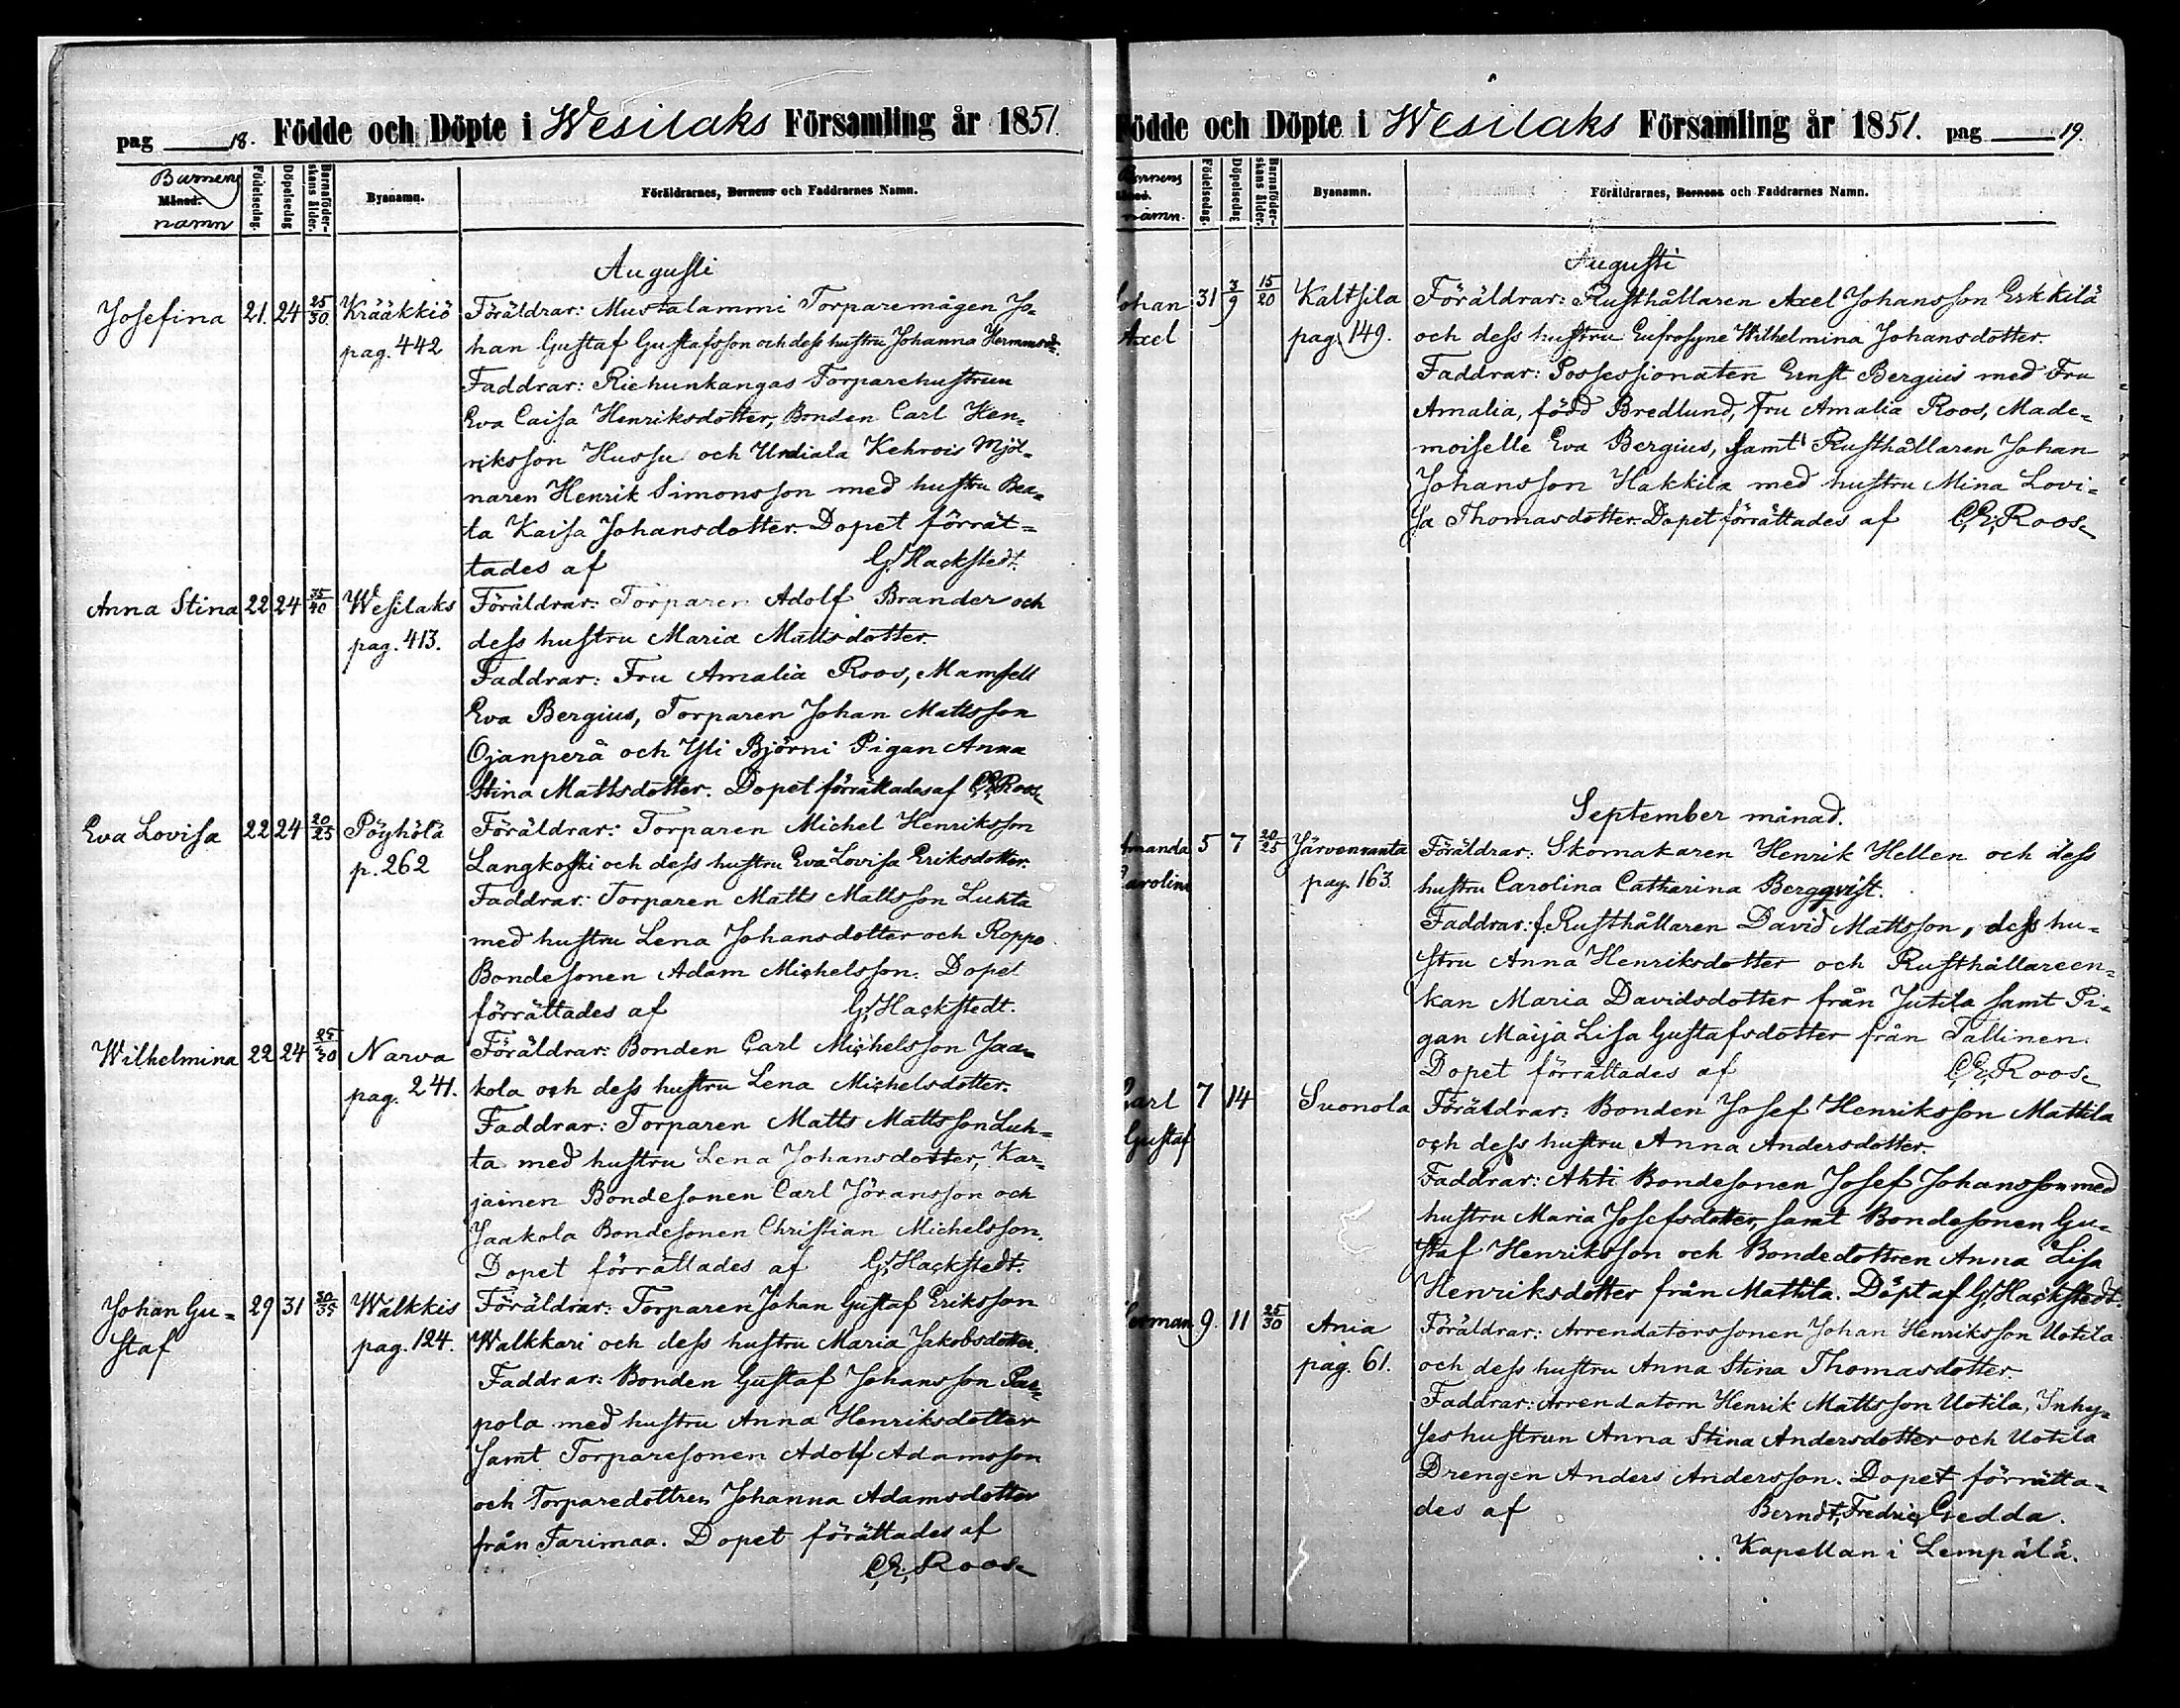 pag 18. Födde och Döpte i Wesilaks Församling år 1851.
Barnens
Månad.
namn
Födelsedag.
Döpelsedag
Barnaföder-
skans ålder.
Byanamn.
Föräldrarnes, Barnens och Faddrarnes Namn.
Augusti
Josefina 21. 24 25/30 Krääkkiö Föräldrar: Mustalammi Torparemågen Jo-
pag. 442 han Gustaf Gustafsson och dess hustru Johanna Hermansd:
Faddrar: Riehunkangas Torparehustrun
Eva Caisa Henriksdotter, Bonden Carl Hen-
riksson Hussu och Urdiala Kehrois Mjöl-
naren Henrik Simonsson med hustru Bea-
ta Kaisa Johansdotter. Dopet förrät-
tades af G. Hackstedt.
Anna Stina 22 24 35/40 Wesilaks Föräldrar: Torparen Adolf Brander och
pag. 413. dess hustru Maria Mattsdotter.
Faddrar: Fru Amalia Roos, Mamsell
Eva Bergius, Torparen Johan Mattsson
Ojanperä och Yli Björni Pigan Anna
Stina Mattsdotter. Dopet förrättades af C. E. Roos
Eva Lovisa 22 24 20/25 Pöyhölä Föräldrar: Torparen Michel Henriksson
p. 262 Langkoski och dess hustru Eva Lovisa Eriksdotter.
Faddrar: Torparen Matts Mattsson Luhta
med hustru Lena Johansdotter och Roppo
Bondesonen Adam Michelsson. Dopet
förrättades af G. Hackstedt.
Wilhelmina 22 24 25/30 Narva Föräldrar: Bonden Carl Michelsson Jaa-
pag. 241. kola och dess hustru Lena Michelsdotter.
Faddrar: Torparen Matts Mattsson Luh-
ta med hustru Lena Johansdotter, Kar-
jainen Bondesonen Carl Jöransson och
Jaakola Bondesonen Christian Michelsson.
Dopet förrättades af G. Hackstedt.
Johan Gu- 29 31 30/35 Walkkis Föräldrar: Torparen Johan Gustaf Eriksson
staf pag. 124. Walkkari och dess hustru Maria Jakobsdotter.
Faddrar: Bonden Gustaf Johansson Paa-
pola med hustru Anna Henriksdotter
samt Torparesonen Adolf Adamsson
och Torparedottren Johanna Adamsdotter
från Tarimaa. Dopet förättades af
C. E. Roos
Födde och Döpte i Wesilaks Församling år 1851. pag 19.
Barnens
Månad.
namn.
Födelsedag.
Döpelsedag
Barnaföder-
skans ålder.
Byanamn.
Föräldrarnes, Barnens och Faddrarnes Namn.
Augusti
Johan 31 3/9 15/20 Kaltsila Föräldrar: Rusthållaren Axel Johansson Erkkilä
Axel pag. 149. och dess hustru Eufrosyne Wilhelmina Johansdotter.
Faddrar: Possessionaten Ernst Bergius med Fru
Amalia, född Bredlund, Fru Amalia Roos, Made-
moiselle Eva Bergius, samt Rusthållaren Johan
Johansson Hakkila med hustru Mina Lovi-
sa Thomasdotter. Dopet förrättades af C. E. Roos
September månad.
Amanda 5 7 20/25 Järvenranta Föräldrar: Skomakaren Henrik Hellen och dess
Carolina pag. 163. hustru Carolina Catharina Bergqvist.
Faddrar: f. Rusthållaren David Mattsson, dess hu-
stru Anna Henriksdotter och Rusthållareen-
kan Maria Davidsdotter från Jutila samt Pi-
gan Maija Lisa Gustafsdotter från Tallinen.
Dopet förrättades af C. E. Roos
Carl 7 14 Suonola Föräldrar: Bonden Josef Henriksson Mattila
Gustaf och dess hustru Anna Andersdotter.
Faddrar: Ahti Bondesonen Josef Johansson med
hustru Maria Josefsdotter, samt Bondesonen Gu-
staf Henriksson och Bondedottren Anna Lisa
Henriksdotter från Mattila. Döpt af G. Hackstedt.
Herman 9. 11 25/30 Ania Föräldrar: Arrendatorssonen Johan Henriksson Uotila
pag. 61. och dess hustru Anna Stina Thomasdotter.
Faddrar: Arrendatorn Henrik Mattsson Uotila, Inhy-
seshustrun Anna Stina Andersdotter och Uotila
Drengen Anders Andersson. Dopet förrätta-
des af Berndt Fredric Gedda.
Kapellan i Lempälä.